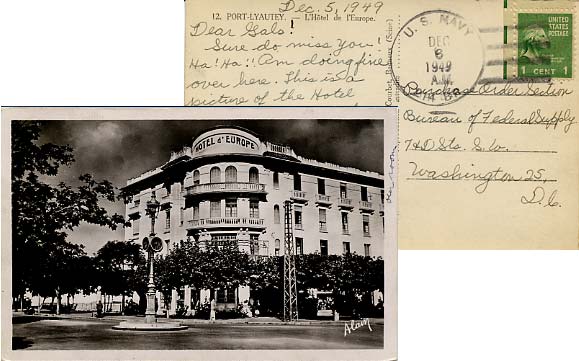 Dec. 5, 1949
12. PORT-LYAUTEY. — L'Hôtel de l'Europe.
Dear Gals!
Sure do miss you!
Ha! Ha!! Am doing fine
over here. This is a
picture of the Hotel
U. S. NAVY
DEC
6
1949
A.M.
UNITED STATES
POSTAGE
1 CENT 1
Purchase Order Section
Bureau of Federal Supply
7th & D Sts. S.W.
Washington 25,
D.C.
HOTEL d'EUROPE
my room
Alain